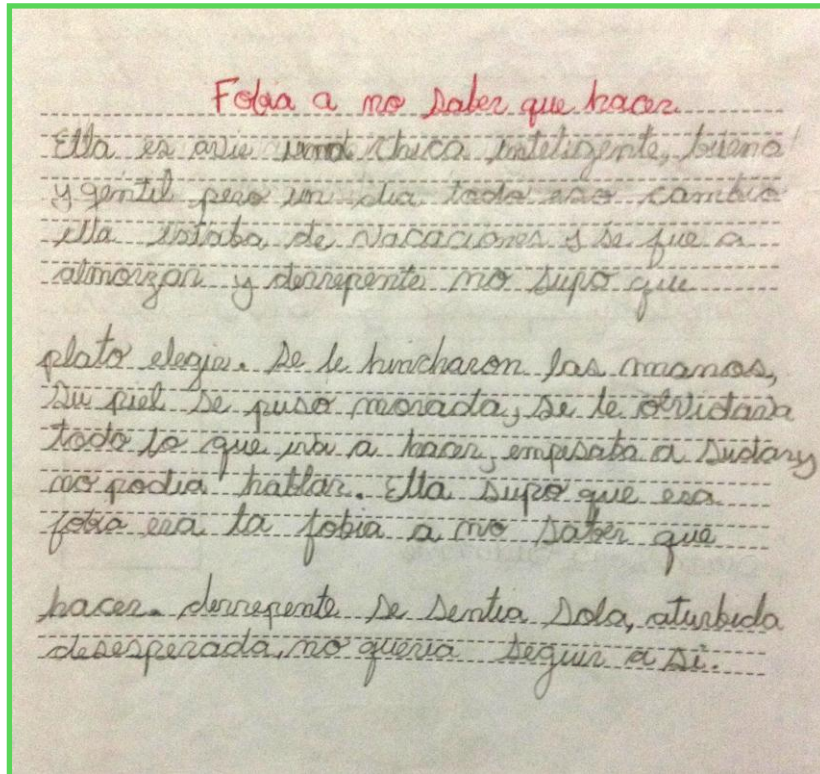 Fobia a no saber que hacer
Ella es avie una chica inteligente, buena
y gentil pero un dia todo eso cambio
ella estaba de vacaciones y se fue a
almorzar y derrepente no supo que
plato elegir. Se le hincharon las manos,
su piel se puso morada, se le olvidava
todo lo que iva a hacer, empesaba a sudar y
no podia hablar. Ella supo que esa
fobia era la fobia a no saber que
hacer. derrepente se sentia sola, aturbida
desesperada, no queria seguir a si.